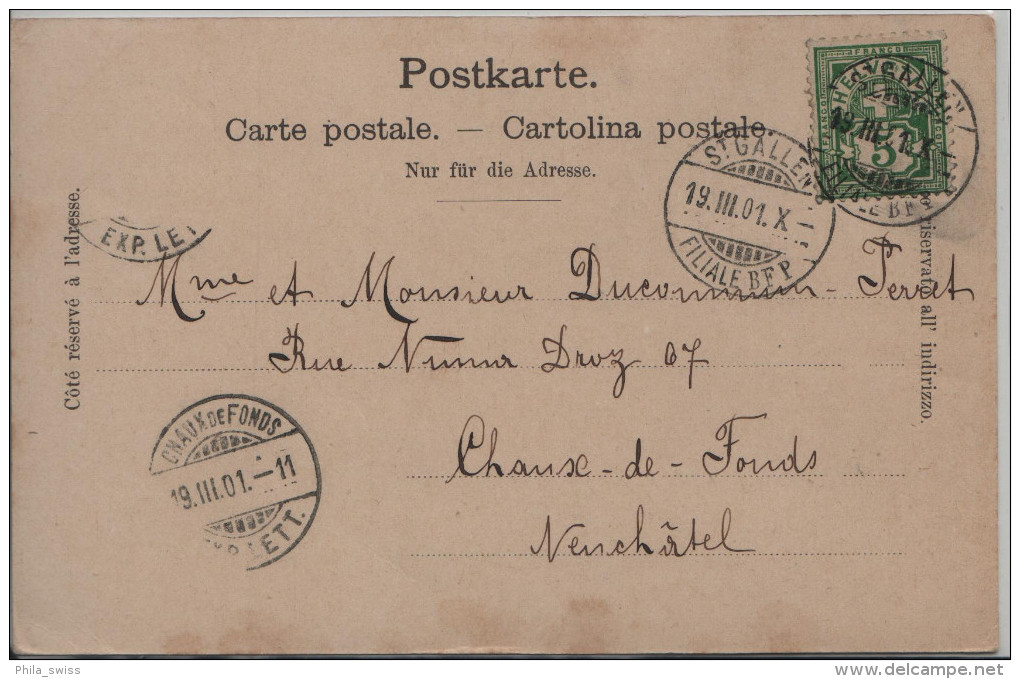 Postkarte.
Carte postale. — Cartolina postale.
Nur für die Adresse.
Côté réservé à l'adresse.
riservato all' indirizzo.
FRANCO
FRANCO
5
ST GALLEN
19.III.01. X
FILIALE B F P
19.III.01.X
EXP. LET
Mme et Monsieur Ducommun - Perret
Rue Numa Droz 67
Chaux - de - Fonds
Neuchâtel
CHAUX DE FONDS
19.III.01. – 11
EXP. LETT.
Phila_swiss
delcampe.net